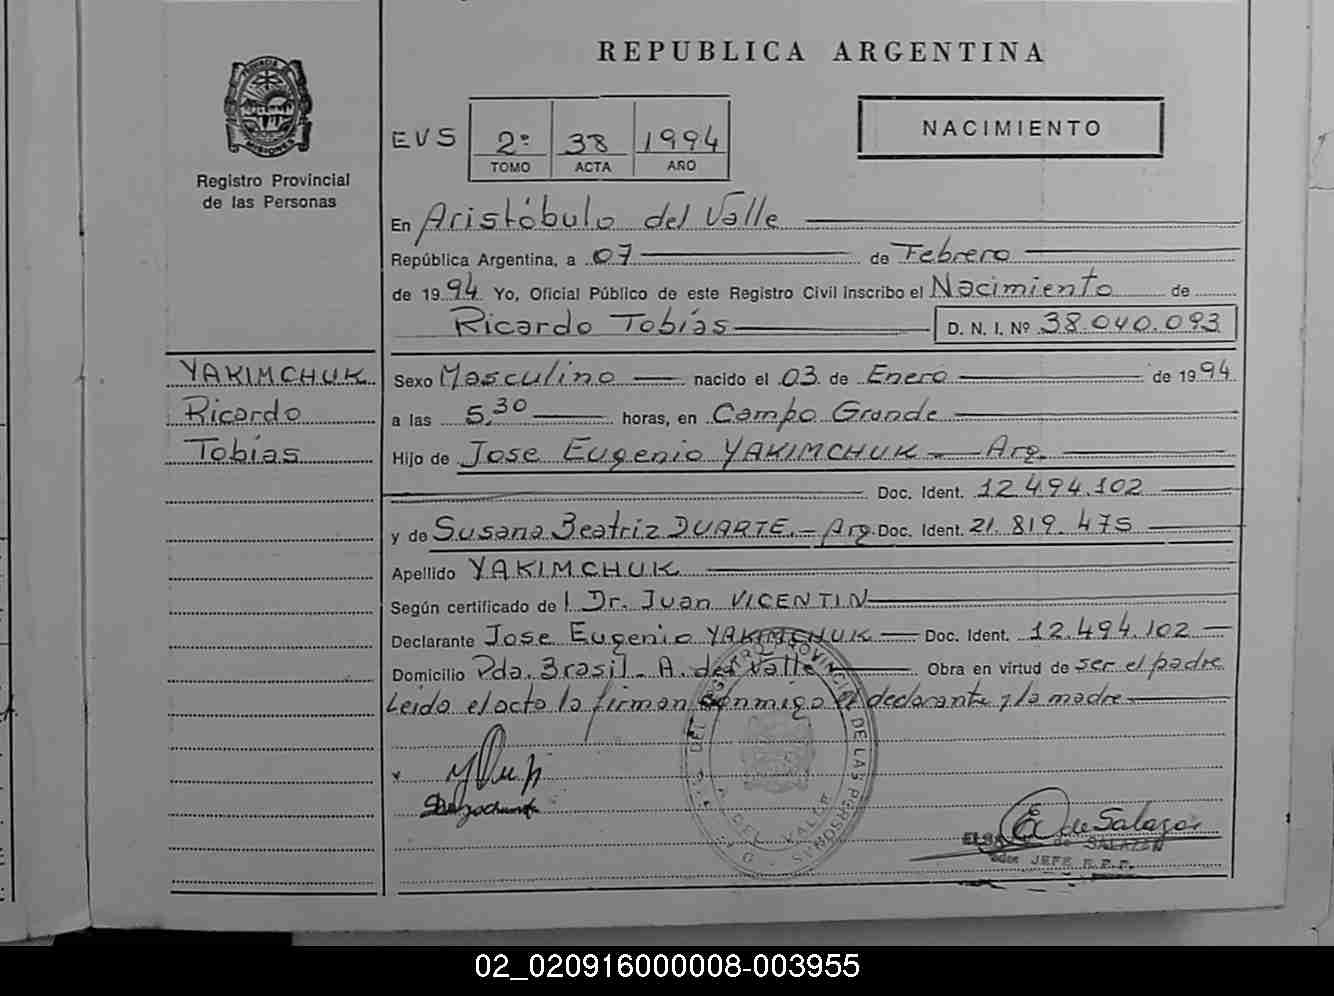 REPUBLICA ARGENTINA
PROVINCIA DE MISIONES
Registro Provincial
de las Personas
EVS 2º 38 1994
TOMO ACTA AÑO
NACIMIENTO
En Aristóbulo del Valle
República Argentina, a 07 de Febrero
de 1994 Yo, Oficial Público de este Registro Civil inscribo el Nacimiento de
Ricardo Tobías D. N. I. Nº 38.040.093
YAKIMCHUK
Ricardo
Tobías
Sexo Masculino nacido el 03 de Enero de 1994
a las 5,30 horas, en Campo Grande
Hijo de Jose Eugenio YAKIMCHUK Arg.
Doc. Ident. 12.494.102
y de Susana Beatriz DUARTE.- Arg. Doc. Ident. 21.819.475
Apellido YAKIMCHUK
Según certificado de l Dr. Juan VICENTIN
Declarante Jose Eugenio YAKIMCHUK Doc. Ident. 12.494.102
Domicilio Pda. Brasil - A. del Valle Obra en virtud de ser el padre
Leída el acta la firman conmigo el declarante y la madre
DEL REGISTRO PROVINCIAL DE LAS PERSONAS
A. DEL VALLE
E de Salazar
de SALAZAR
JEFE
02_020916000008-003955